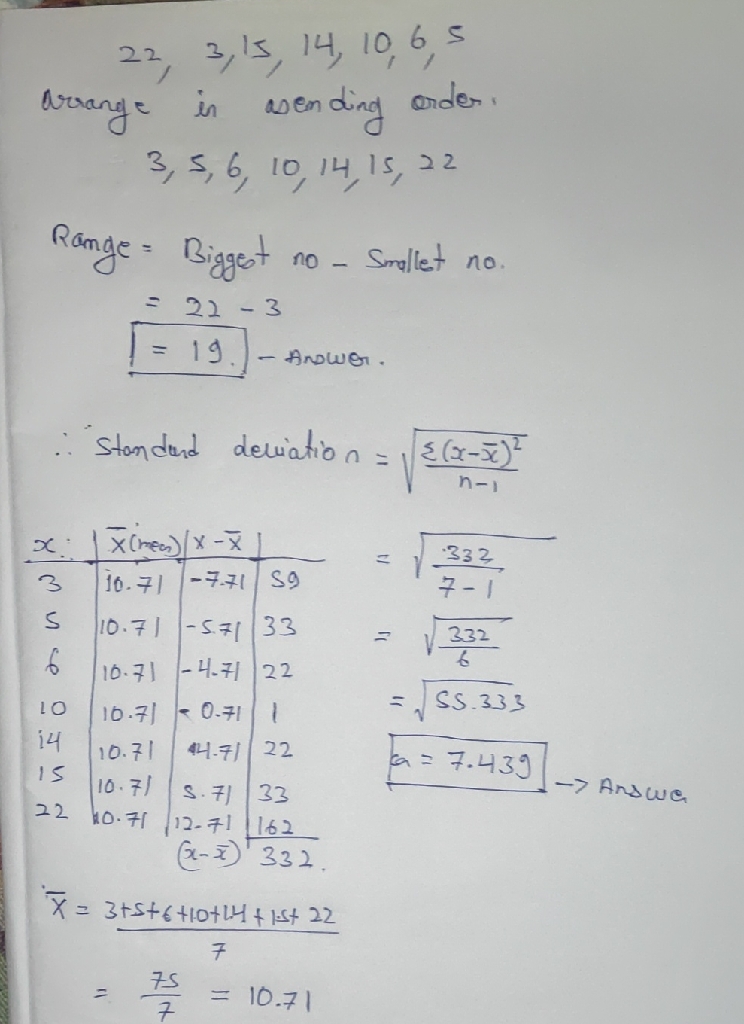 22, 3, 15, 14, 10, 6, 5
Arrange in asending order.
3, 5, 6, 10, 14, 15, 22
Range = Biggest no - Smallet no.
= 22 - 3
= 19. - Answer.
∴ Standard deviation = √Σ(x-x̄)²/n-1
x: | x̄(mean) | x-x̄ |
3 | 10.71 | -7.71 | 59
5 | 10.71 | -5.71 | 33
6 | 10.71 | -4.71 | 22
10 | 10.71 | -0.71 | 1
14 | 10.71 | 4.71 | 22
15 | 10.71 | 5.71 | 33
22 | 10.71 | 12.71 | 162
(x-x̄) 332.
= √332/7-1
= √332/6
= √55.333
= 7.439 → Answer
x̄ = 3+5+6+10+14+15+22/7
= 75/7 = 10.71